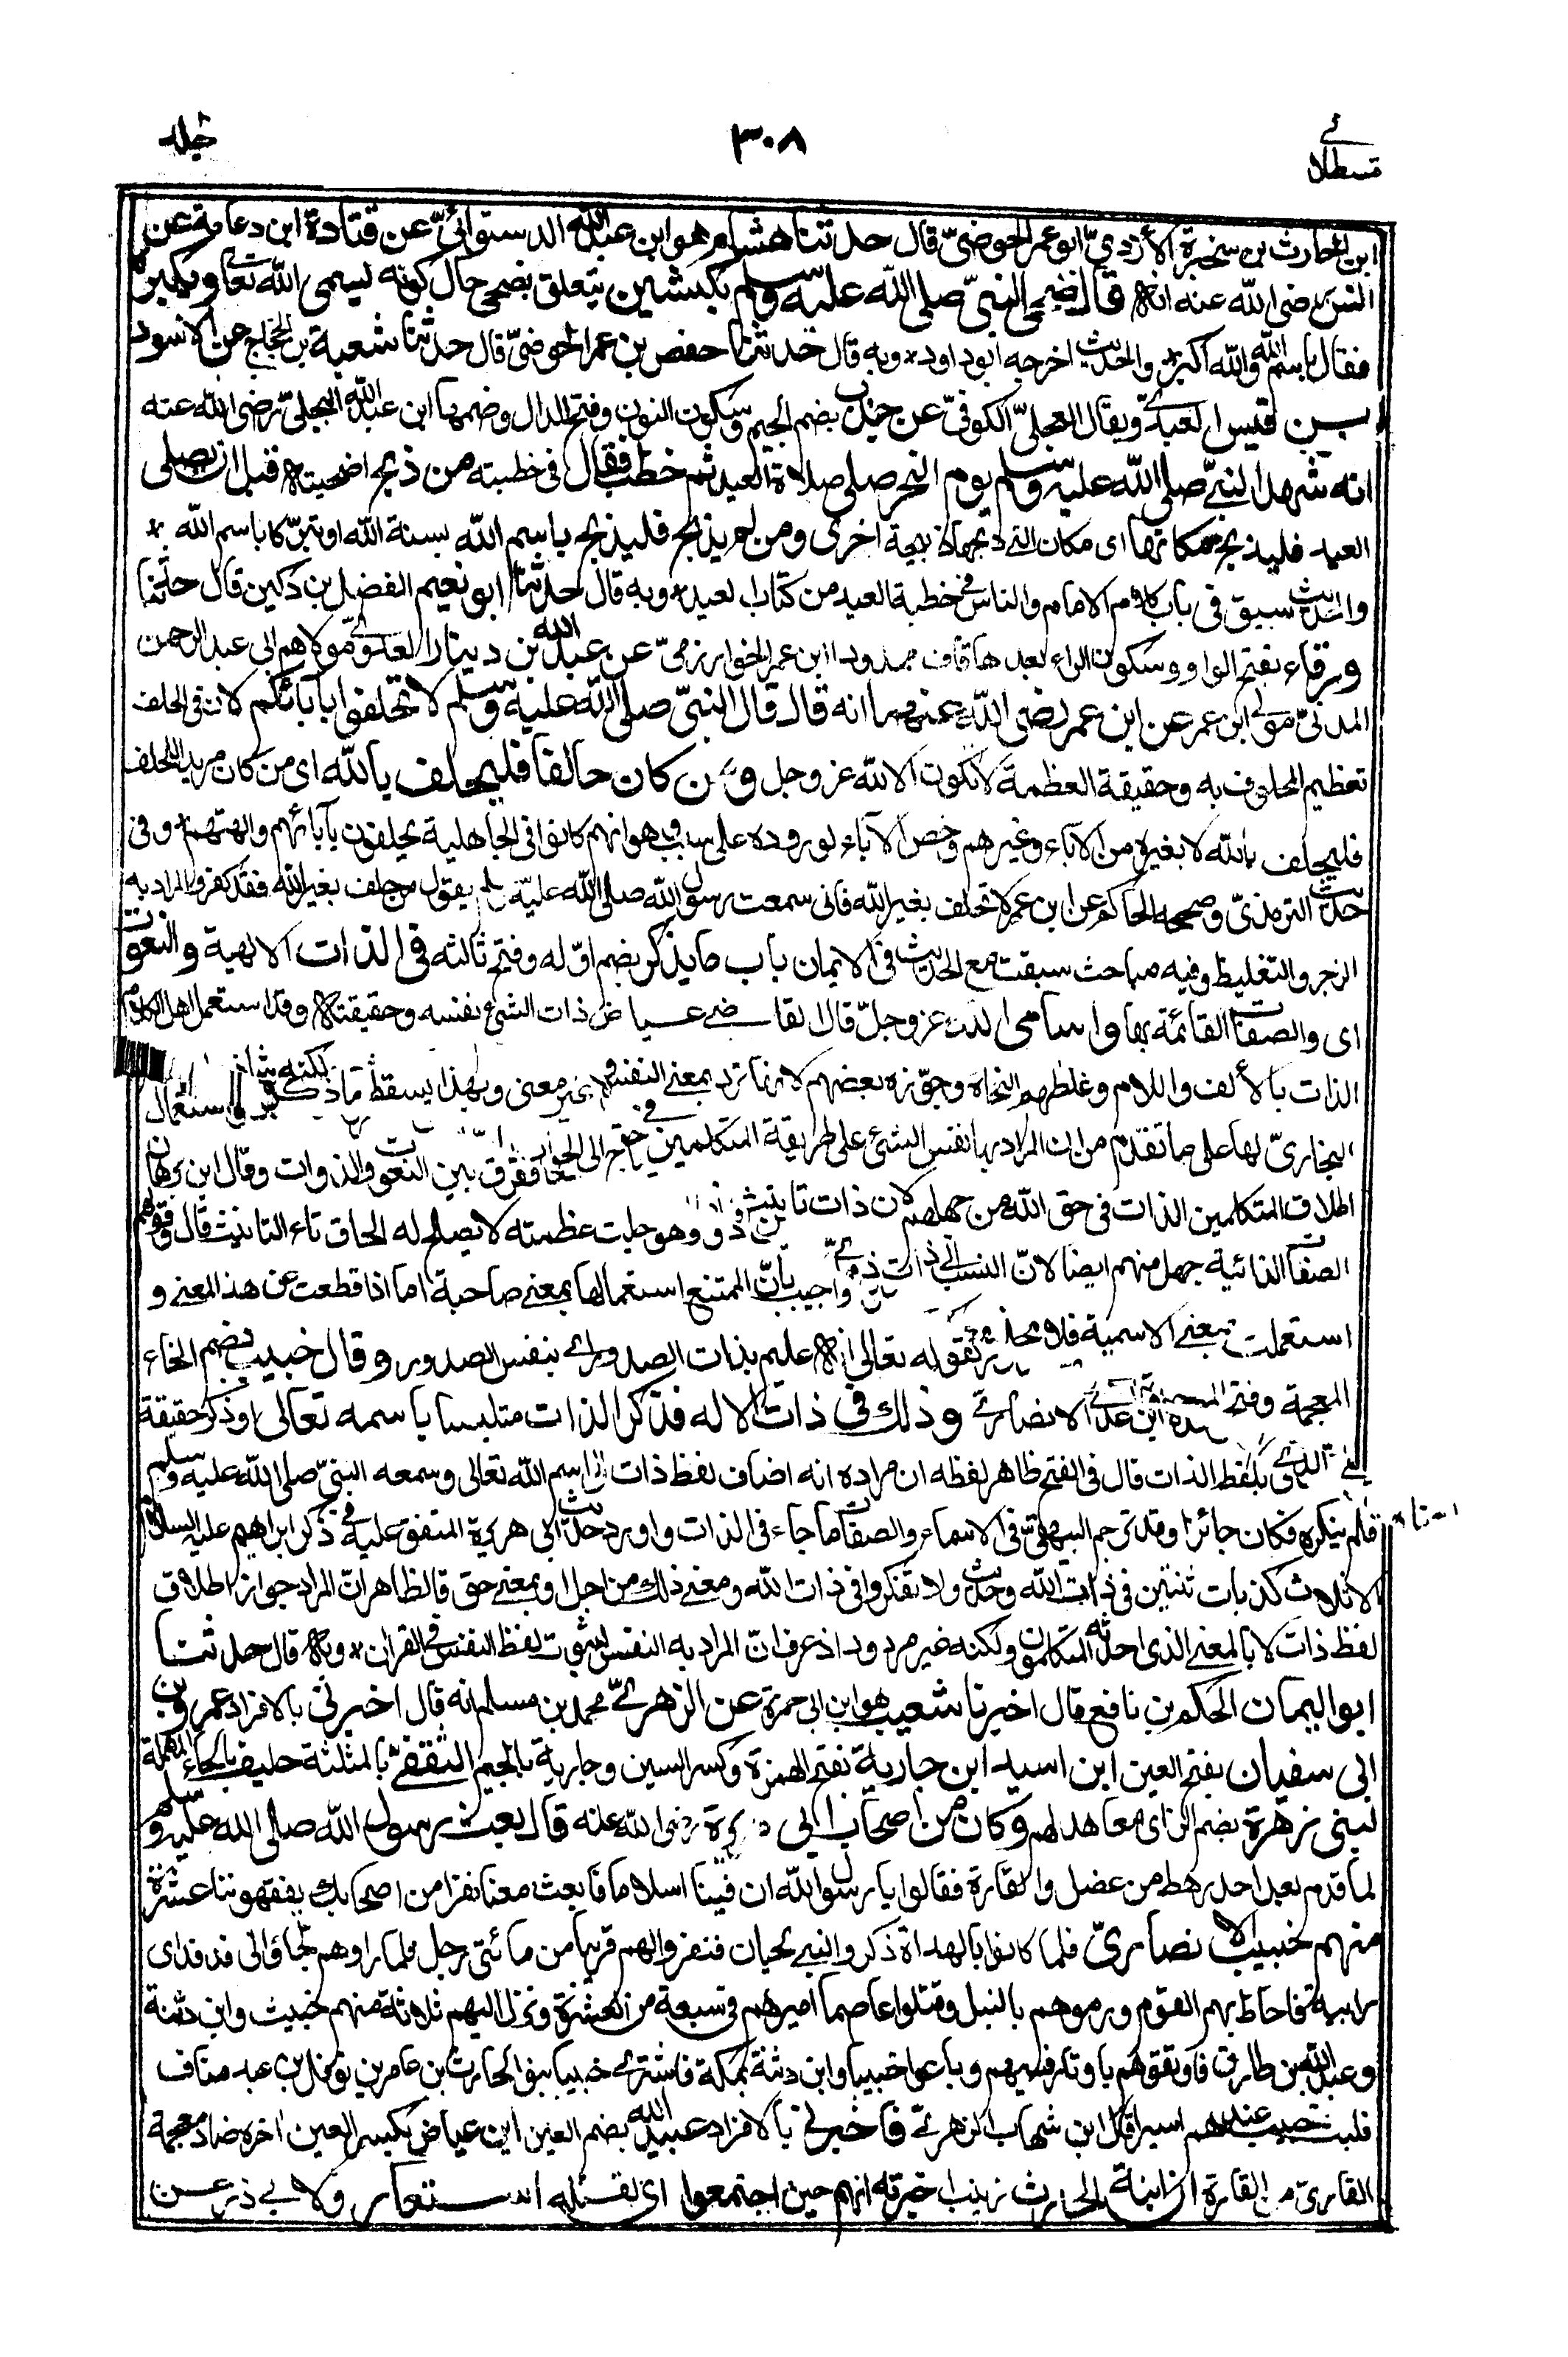 قسطلانى
٣٠٨
جلد
ابن الحارث بن سخبرة الأزدىّ ابو عمر الحوضىّ قال حدثنا هشام هو ابن عبد الله الدستوائىّ عن قتادة ابن دعامة عن
انس رضى الله عنه انه قال ضحى النبىّ صلى الله عليه وسلم بكبشين يتعلق بضحى حال كونه يسمى الله تعالى ويكبره
فقال باسم الله والله اكبر والحديث اخرجه ابو داود * وبه قال حدثنا حفص بن عمر الحوضىّ قال حدثنا شعبة بن الحجاج عن الاسود
بن قيس العبدىّ ويقال العجلىّ الكوفىّ عن جندب بضم الجيم وسكون النون وفتح الدال وضمها ابن عبد الله البجلىّ رضى الله عنه
انه شهد النبىّ صلى الله عليه وسلم يوم النحر صلى صلاة العيد ثم خطب فقال فى خطبته من ذبح اضحيته قبل ان يصلى
العيد فليذبح مكانها اى مكان التى ذبحها ذبيحة اخرى ومن لم يذبح فليذبح باسم الله بسنة الله او تبرّكا باسم الله *
والحديث سبق فى باب كلام الامام والناس فى خطبة العيد من كتاب العيد * وبه قال حدثنا ابو نعيم الفضل بن دكين قال حدثنا
ورقاء بفتح الواو وسكون الراء بعدها قاف ممدودا ابن عمر الخوارزمىّ عن عبد الله بن دينار العدوىّ مولاهم ابى عبد الرحمن
المدنىّ مولى ابن عمر عن ابن عمر رضى الله عنهما انه قال قال النبىّ صلى الله عليه وسلم لا تحلفوا بآبائكم لان فى الحلف
تعظيم المحلوف به وحقيقة العظمة لا تكون الا لله عز وجل ومن كان حالفا فليحلف بالله اى من كان مريدا للحلف
فليحلف بالله لا بغيره من الآباء وغيرهم وخص الآباء لوروده على سبب وهو انهم كانوا فى الجاهلية يحلفون بآبائهم والهتهم * وفى
حديث الترمذىّ وصححه الحاكم عن ابن عمر لا تحلف بغير الله فانى سمعت رسول الله صلى الله عليه وسلم يقول من حلف بغير الله فقد كفر والمراد به
الزجر والتغليظ وفيه مباحث سبقت مع الحديث فى الايمان باب ما يذكر بضم اوّله وفتح ثالثه فى الذات الالهية والنعوت
اى والصفات القائمة بها واسامى الله عز وجلّ قال القاضى عياض ذات الشئ نفسه وحقيقته وقد استعمل اهل الكلام
الذات بالألف واللام وغلطهم النحاة وجوّزه بعضهم لانها ترد بمعنى النفس وبهذا يسقط ما ذكر لكنه استعمال
البخارىّ لها على ما تقدّم من ان المراد بها نفس الشئ على طريقة المتكلمين فى حق الله ففرق بين النعوت والذوات وقال ابن برهان
اطلاق المتكلمين الذات فى حق الله من جهلهم لان ذات تأنيث ذو وهو جلت عظمته لا يصلح له الحاق تاء التأنيث قال وقولهم
الصفات الذاتية جهل منهم ايضا لانّ النسب الى ذات ذووى واجيب بأنّ الممتنع استعمالها بمعنى صاحبة اما اذا قطعت عن هذا المعنى و
استعملت بمعنى الاسمية فلا محذور لقوله تعالى انه عليم بذات الصدور اى بنفس الصدور وقال خبيب بضم الخاء
المعجمة وفتح الموحدة ابن عدىّ الانصارىّ وذلك فى ذات الاله فذكر الذات متلبسا باسمه تعالى او ذكر حقيقة
الله تعالى بلفظ الذات قال فى الفتح ظاهر لفظه ان مراده انه اضاف لفظ ذات الى اسم الله تعالى وسمعه النبىّ صلى الله عليه وسلم
فلم ينكره فكان جائزا وقد ترجم البيهقىّ فى الاسماء والصفات ما جاء فى الذات واورد حديث ابى هريرة المتفق عليه فى ذكر ابراهيم عليه السلام
الا ثلاث كذبات ثنتين فى ذات الله وحديث ولا تفكروا فى ذات الله ومعنى ذلك من اجل او بمعنى حق فالظاهر انّ المراد جواز اطلاق
لفظ ذات لا بالمعنى الذى احدثه المتكلمون ولكنه غير مردود اذ عرف انّ المراد به النفس لثبوت لفظ النفس فى القرآن * وبه قال حدثنا
ابو اليمان الحكم بن نافع قال اخبرنا شعيب هو ابن ابى حمزة عن الزهرىّ محمد بن مسلم انه قال اخبرنى بالافراد عمرو بن
ابى سفيان بفتح العين ابن اسيد ابن جارية بفتح الهمزة وكسر السين وجارية بالجيم الثقفىّ بالمثلثة حليف بالحاء المهملة
لبنى زهرة بضم الزاى معاهد لهم وكان من اصحاب ابى هريرة رضى الله عنه قال بعث رسول الله صلى الله عليه وسلم
لما قدم بعد احد رهط من عضل والقارة فقالوا يا رسول الله ان فينا اسلاما فابعث معنا نفرا من اصحابك يفقهوننا عشرة
منهم خبيب الانصارىّ فلما كانوا بالهداة ذكروا لبنى لحيان فنفروا لهم قريبا من مائتى رجل فلما راوهم لجاؤا الى فدفد اى
رابية فاحاط بهم القوم ورموهم بالنبل وقتلوا عاصما اميرهم فى سبعة من العشرة ونزل اليهم ثلاثة منهم خبيب وابن دثنة
وعبد الله بن طارق فاوثقوهم باوتار قسيهم وباعوا خبيبا وابن دثنة بمكة فاشترى خبيبا بنو الحارث بن عامر بن نوفل بن عبد مناف
فلبث خبيب عندهم اسيرا قال ابن شهاب الزهرىّ فاخبرنى بالافراد عبيد الله بضم العين ابن عياض بكسر العين اخره ضاد معجمة
القارىّ من القارة ان ابنة الحارث زينب اخبرته انهم حين اجتمعوا اى لقتله استعار ولابى ذر عن